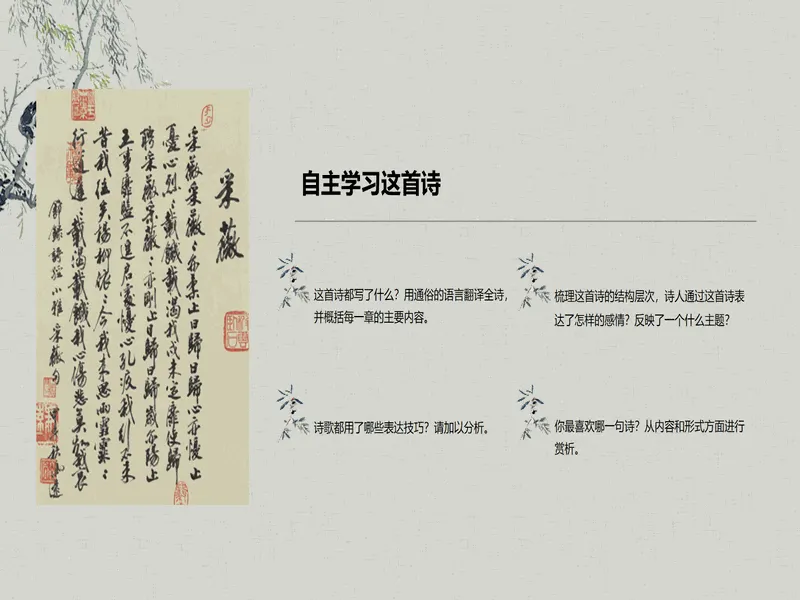 自主学习这首诗
这首诗都写了什么？用通俗的语言翻译全诗，
并概括每一章的主要内容。
梳理这首诗的结构层次，诗人通过这首诗表
达了怎样的感情？反映了一个什么主题？
诗歌都用了哪些表达技巧？请加以分析。
你最喜欢哪一句诗？从内容和形式方面进行
赏析。
采薇
采薇采薇々亦柔止曰歸曰歸心亦憂止
憂心烈々載飢載渴我戍未定靡使歸
聘采薇采薇々亦剛止曰歸曰歸歲亦陽止
王事靡盬不遑启處憂心孔疚我行不來
昔我往矣楊柳依々今我來思雨雪霏々
行道遲々載渴載飢我心傷悲莫知我哀
節錄詩經小雅采薇句